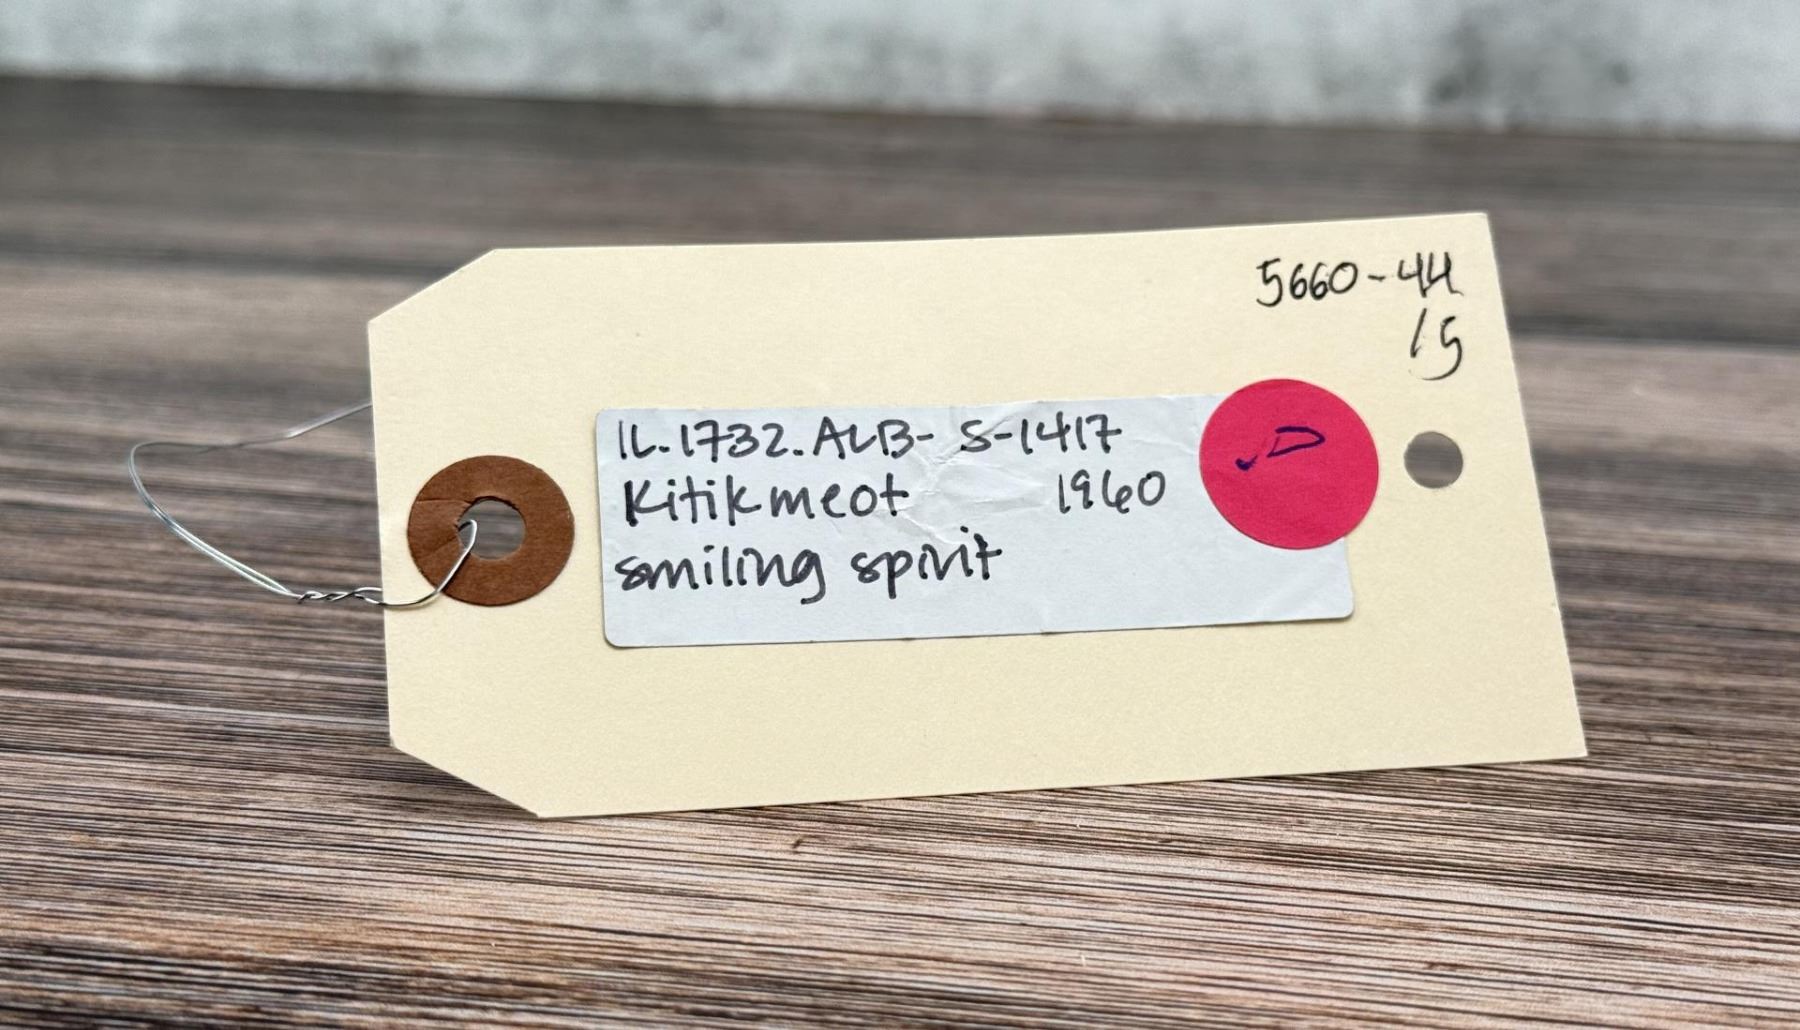 5660-44
15
IL.1732.ALB- S-1417
Kitikmeot 1960
smiling spirit